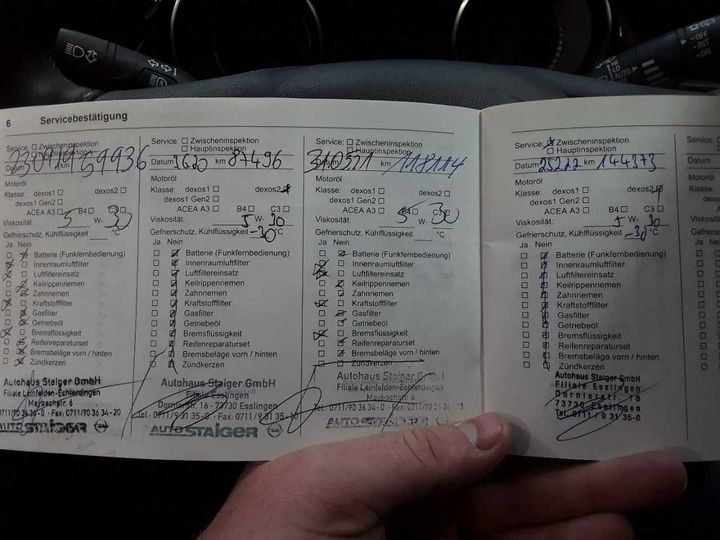 6 Servicebestätigung
Service: Zwischeninspektion
Hauptinspektion
Datum 59936
Motoröl
Klasse: dexos1 dexos2
dexos1 Gen2
ACEA A3 B4 C3
Viskosität: 5 W- 30
Gefrierschutz, Kühlflüssigkeit °C
Ja Nein
Batterie (Funkfernbedienung)
Innenraumluftfilter
Luftfiltereinsatz
Keilrippenriemen
Zahnriemen
Kraftstofffilter
Gasfilter
Getriebeöl
Bremsflüssigkeit
Reifenreparaturset
Bremsbeläge vorn / hinten
Zündkerzen
Autohaus Staiger GmbH
Filiale Leinfelden-Echterdingen
Maybachstr. 6
Tel. 0711/90 36 34-0 · Fax: 0711/90 36 34-20
AUTO STAIGER
Service: Zwischeninspektion
Hauptinspektion
Datum km 87496
Motoröl
Klasse: dexos1 dexos2
dexos1 Gen2
ACEA A3 B4 C3
Viskosität: 5 W- 30
Gefrierschutz, Kühlflüssigkeit -30 °C
Ja Nein
Batterie (Funkfernbedienung)
Innenraumluftfilter
Luftfiltereinsatz
Keilrippenriemen
Zahnriemen
Kraftstofffilter
Gasfilter
Getriebeöl
Bremsflüssigkeit
Reifenreparaturset
Bremsbeläge vorn / hinten
Zündkerzen
Autohaus Staiger GmbH
Filiale Esslingen
Dornierstr. 16 - 73730 Esslingen
Tel.: 0711/9 31 35-0 Fax: 0711/9 31 35-10
AUTO STAIGER
Service: Zwischeninspektion
Hauptinspektion
Datum km 118114
Motoröl
Klasse: dexos1 dexos2
dexos1 Gen2
ACEA A3 B4 C3
Viskosität: 5 W- 30
Gefrierschutz, Kühlflüssigkeit °C
Ja Nein
Batterie (Funkfernbedienung)
Innenraumluftfilter
Luftfiltereinsatz
Keilrippenriemen
Zahnriemen
Kraftstofffilter
Gasfilter
Getriebeöl
Bremsflüssigkeit
Reifenreparaturset
Bremsbeläge vorn / hinten
Zündkerzen
Autohaus Staiger GmbH
Filiale Leinfelden-Echterdingen
Maybachstr. 6
Tel. 0711/90 36 34-0 · Fax: 0711/90 36 34-20
AUTO STAIGER
Service: Zwischeninspektion
Hauptinspektion
Datum km 144373
Motoröl
Klasse: dexos1 dexos2
dexos1 Gen2
ACEA A3 B4 C3
Viskosität: 5 W- 30
Gefrierschutz, Kühlflüssigkeit -30 °C
Ja Nein
Batterie (Funkfernbedienung)
Innenraumluftfilter
Luftfiltereinsatz
Keilrippenriemen
Zahnriemen
Kraftstofffilter
Gasfilter
Getriebeöl
Bremsflüssigkeit
Reifenreparaturset
Bremsbeläge vorn / hinten
Zündkerzen
Autohaus Staiger GmbH
Filiale Esslingen
Dornierstr. 16
73730 Esslingen
Tel. 0711/9 31 35-0
OFF
AUTO